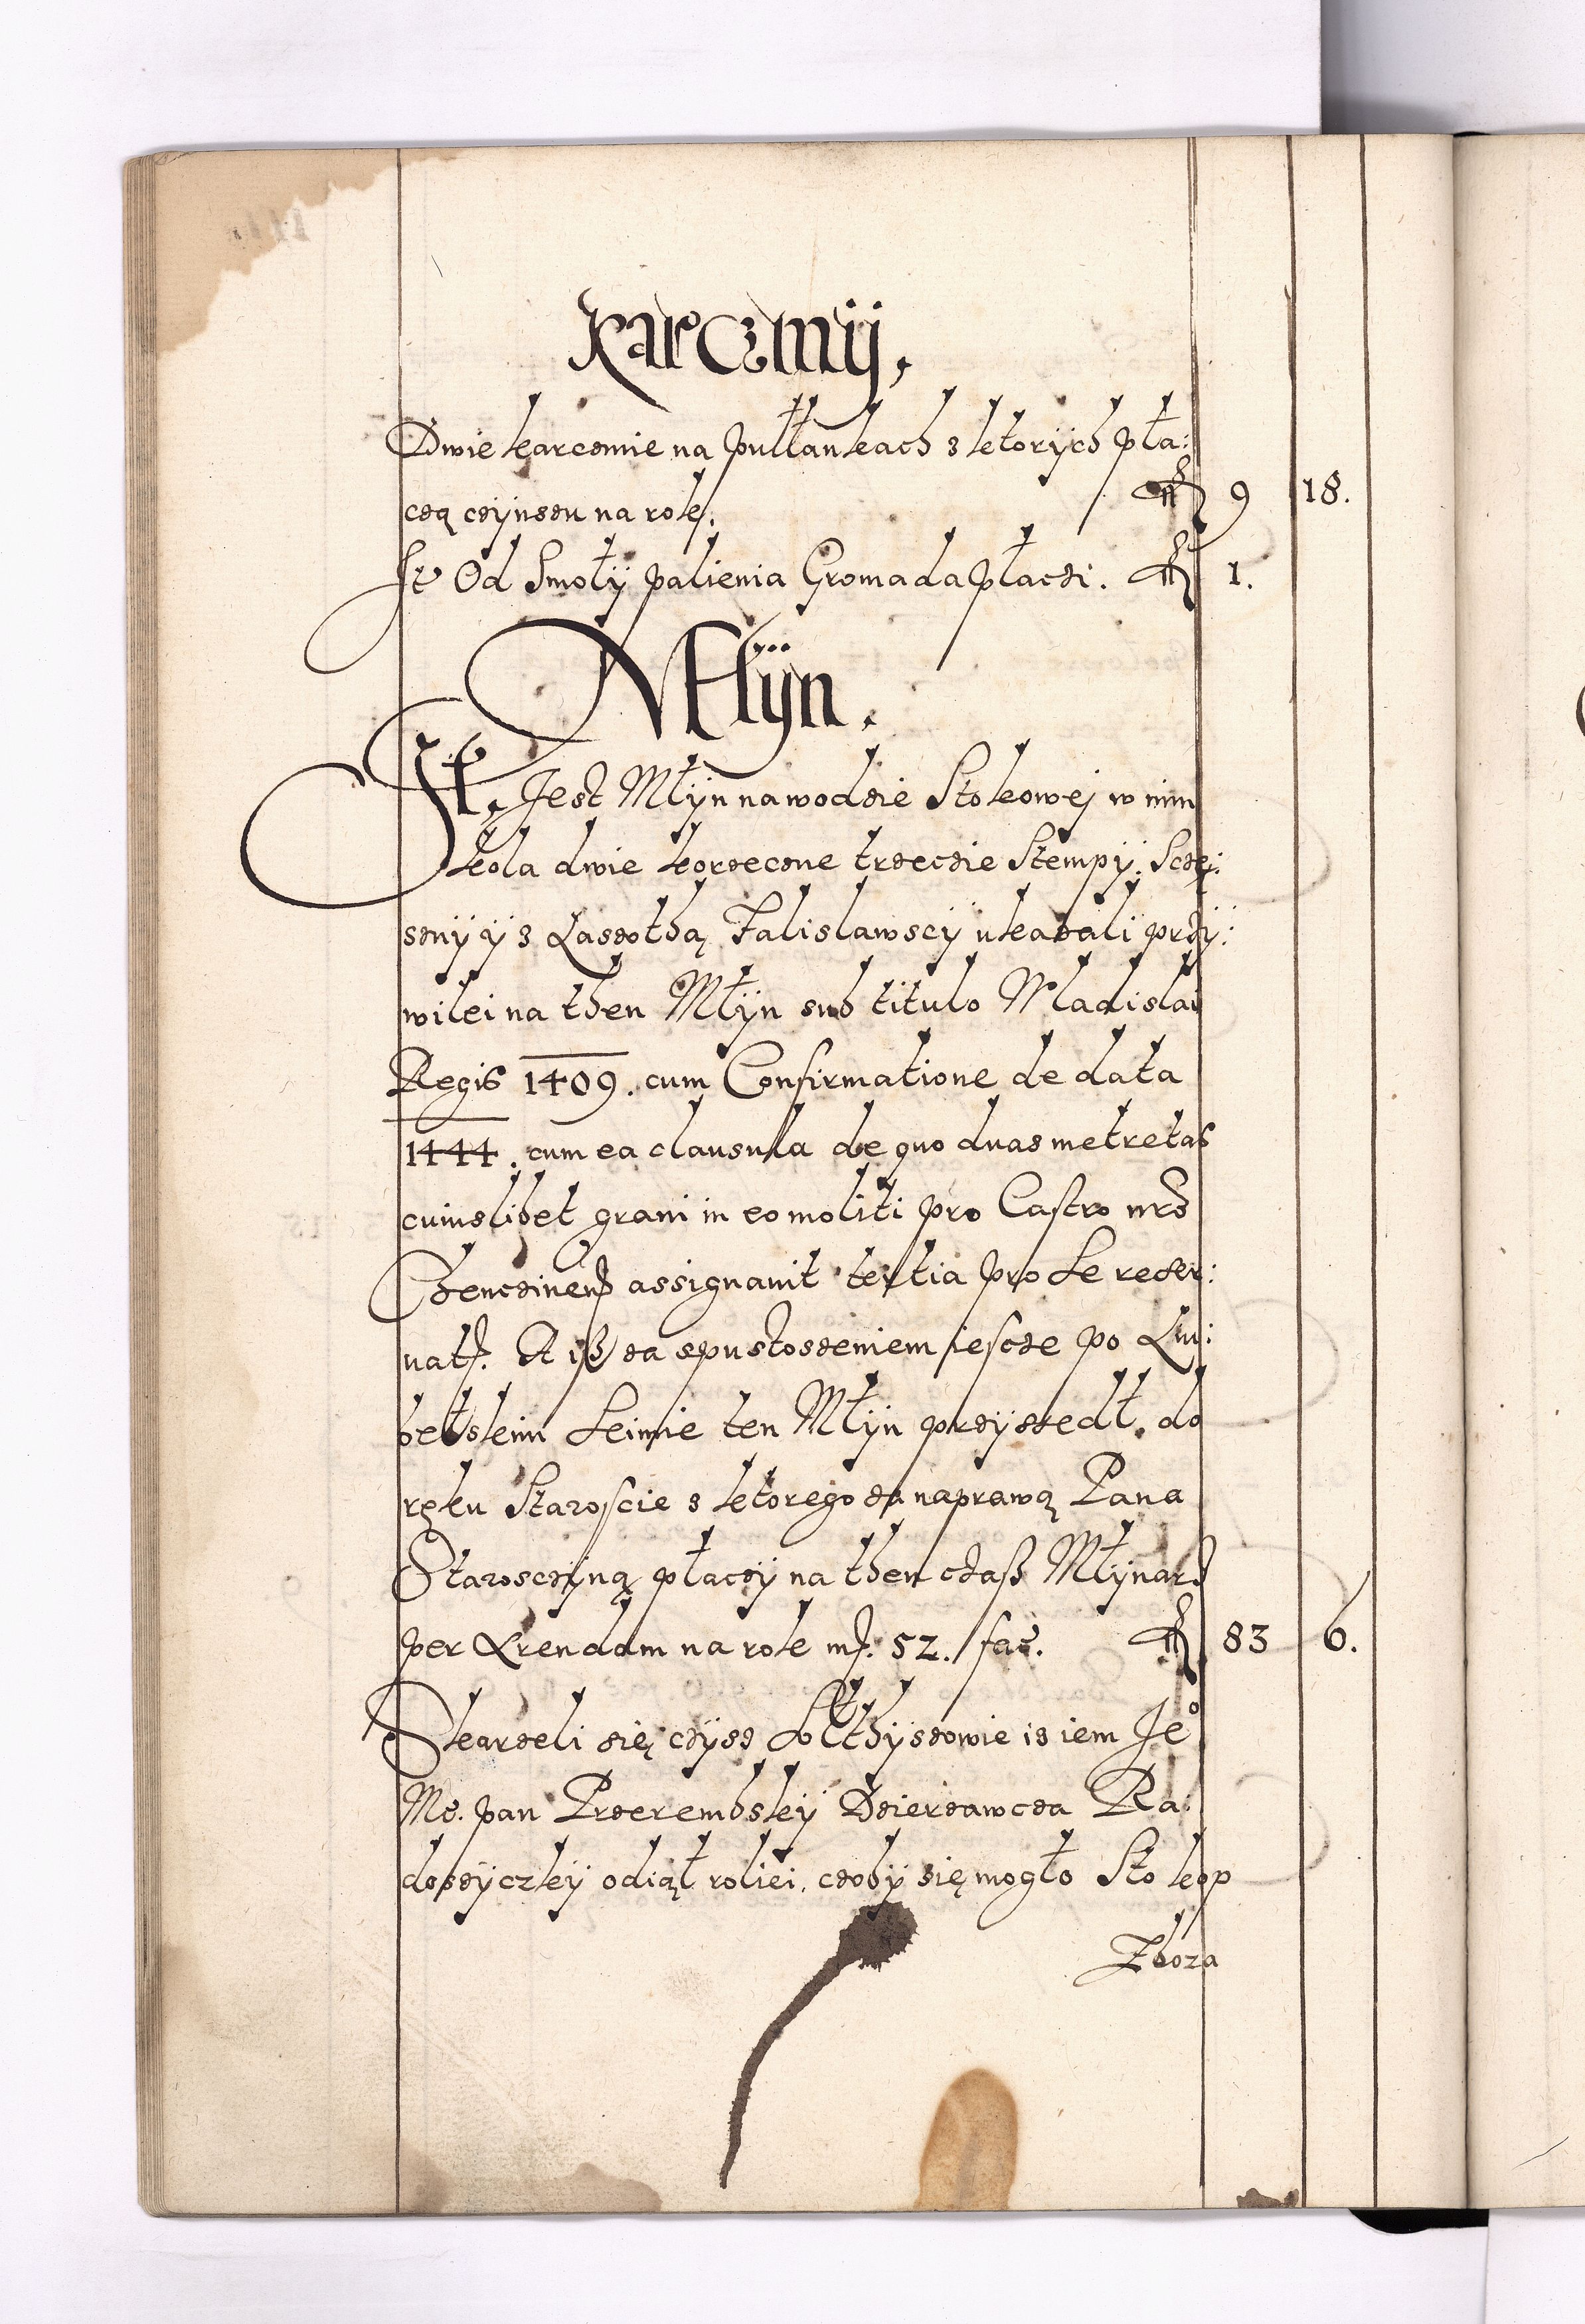 Karczmy.
Dwie karczmie na pułłankach z których pła:
czą czynszu na rok. fl 9 18.
It Od Smoły palienia Gromada płaczi. fl 1.
Młyn.
It. Jest Młyn na wodzie Stokowej w nim
koła dwie korzeczne trzeczie Stempy. Sczę:
sny y z Laszothą Falislawscy ukazali przy:
wilei na then Młyn sub titulo Wladislai
Regis 1409. cum Confirmatione de data
1444. cum ea clausula de quo duas metretas
cuiuslibet grani in eo moliti pro Castro nro
Chencinen assignauit tertia pro se reser:
uat. A iß za spustoszeniem iescze po Lu:
belskim Seimie ten Młyn przyszedł. do
ręku Staroscie z ktorego za naprawą Pana
Starosczyną płaczy na then czaß Młynarz
per Arendam na rok mr. 52. fac. fl 83 6.
Skarzeli się czysz Sołthyszowie is iem Je°
Mc. pan Przerembsky Dzierzawcza Ra:
doszyczky odiął roliei, czoby się mogło Sto kop
Zboza